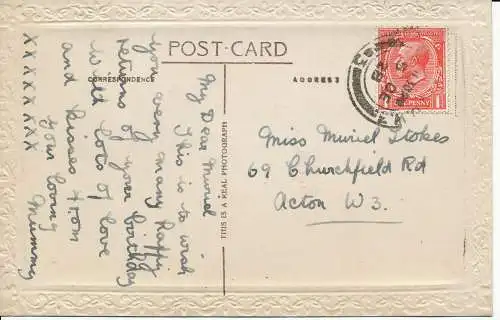 POST-CARD
CORRESPONDENCE
ADDRESS
My Dear Muriel
This is to wish
you very many happy
returns of your birthday
With lots of love
and kisses from
Your loving
Mummy
XXXXXXXX
THIS IS A REAL PHOTOGRAPH
Miss Muriel Stokes
69 Churchfield Rd
Acton W3.
PENNY